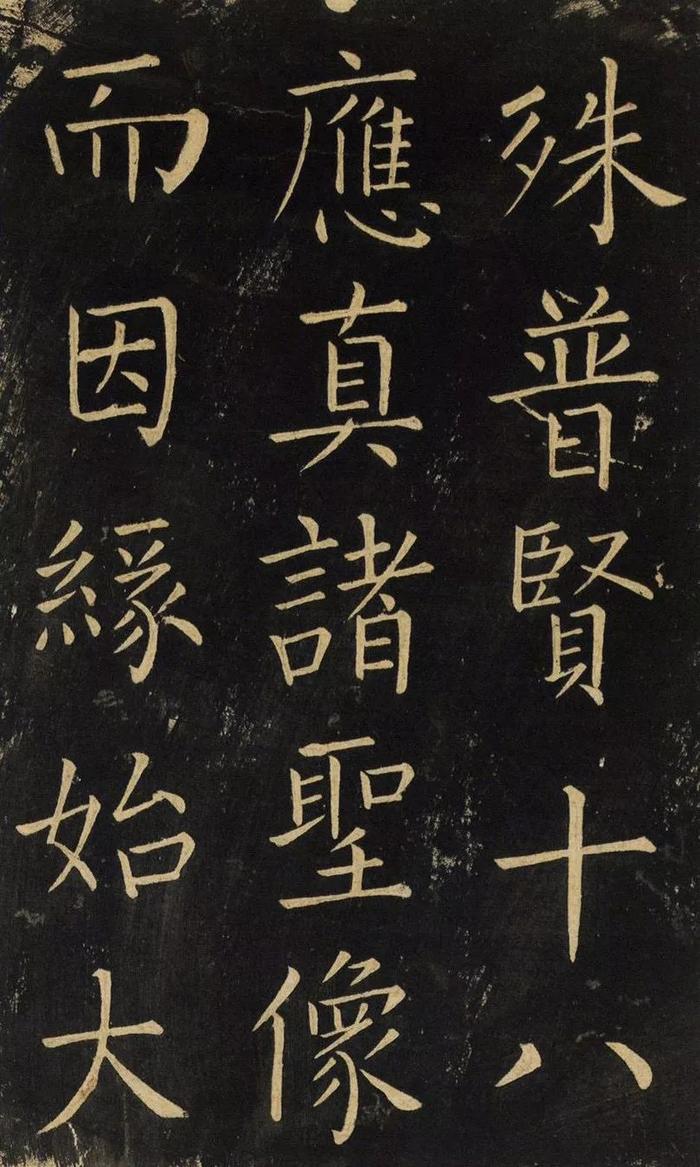 殊普賢十八
應真諸聖像
而因緣始大